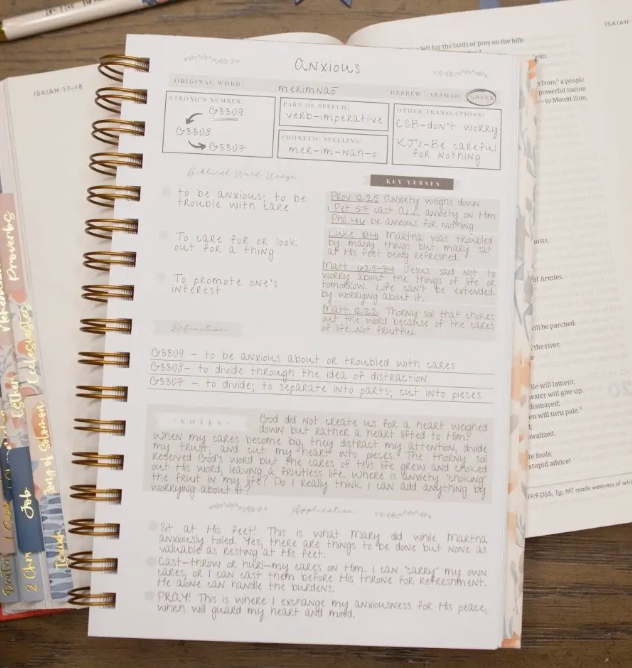 ISAIAH-17-18
ISAIAH
for the birds of prey on the hills
from" a people
powerful nation
—to Mount Zion,
of Armies.
ill be parched
the river.
will lament,
water will give up.
dismayed;
fools;
stupid advice!
Proverbs
Song of Solomon
Isaiah
Job
2 Chr
anxious
ORIGINAL WORD:
merimnaō
HEBREW / ARAMAIC / GREEK
STRONG'S NUMBER:
G3309
G3308
G3307
PART OF SPEECH:
verb-imperative
PHONETIC SPELLING:
mer-im-nah-o
OTHER TRANSLATIONS:
CSB-don't worry
KJV-Be careful
for nothing
Biblical Word Usage
to be anxious; to be
trouble with care
To care for or look
out for a thing
To promote one's
interest
KEY VERSES
Prov 12:25 Anxiety weighs down
1 Pet 5:7 cast ALL anxiety on Him
Phil 4:6 be anxious for nothing
Luke 10:40 Martha was troubled
by many things but Mary sat
at His feet being refreshed.
Matt 6:25-34 Jesus said not to
worry about the things of life or
tomorrow. Life can't be extended
by worrying about it.
Matt 13:22 Thorny soil that chokes
out the word because of the cares
of life. Not fruitful.
Definition
G3309 - to be anxious about or troubled with cares
G3308- to divide through the idea of distraction
G3307 - to divide; to separate into parts, cut into pieces
NOTES
God did not create us for a heart weighed
down but rather a heart lifted to Him.
When my cares become big, they distract my attention, divide
my trust, and cut my "heart" into pieces. The thorny soil
received God's word but the cares of this life grew and choked
out His Word, leaving a fruitless life. Where is anxiety "choking"
the fruit in my life? Do I really think I can add anything by
worrying about it?
Application
Sit at His feet! This is what Mary did while Martha
anxiously toiled. Yes, there are things to be done but none as
valuable as resting at His feet.
Cast-throw or hurl-my cares on Him. I can "carry" my own
cares, or I can cast them before His throne for refreshment.
He alone can handle the burdens.
PRAY! This is where I exchange my anxiousness for His peace,
which will guard my heart and mind.